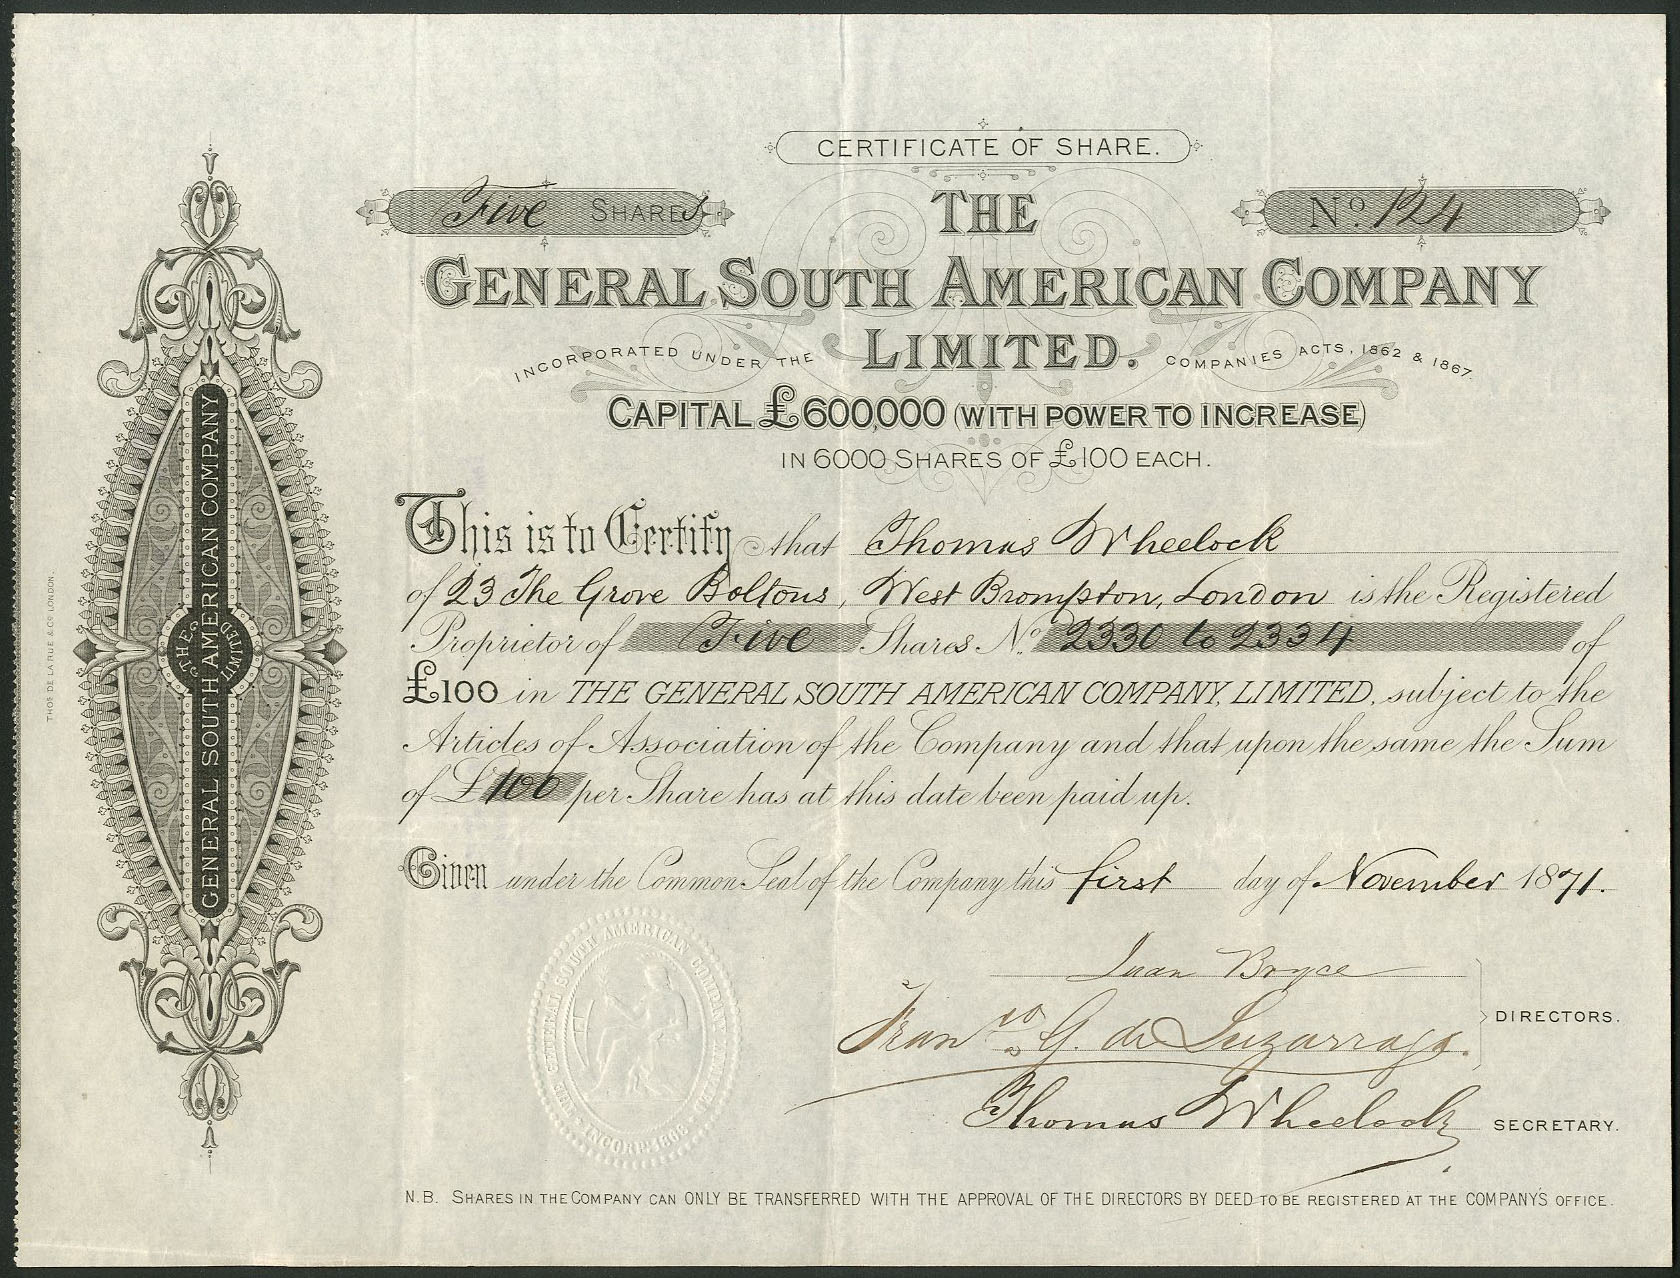 CERTIFICATE OF SHARE.
Five SHARES
No. 124
THE
GENERAL SOUTH AMERICAN COMPANY
LIMITED.
INCORPORATED UNDER THE COMPANIES ACTS, 1862 & 1867.
CAPITAL £600,000 (WITH POWER TO INCREASE)
IN 6000 SHARES OF £100 EACH.
This is to Certify that Thomas Wheelock
of 23 The Grove Boltons, West Brompton, London is the Registered
Proprietor of Five Shares No. 2330 to 2334 of
£100 in THE GENERAL SOUTH AMERICAN COMPANY, LIMITED, subject to the
Articles of Association of the Company and that upon the same the Sum
of £100 per Share has at this date been paid up.
Given under the Common Seal of the Company this first day of November 1871.
Juan Bryce
Franco. G. de Luzarraga.
DIRECTORS.
Thomas Wheelock
SECRETARY.
N.B. SHARES IN THE COMPANY CAN ONLY BE TRANSFERRED WITH THE APPROVAL OF THE DIRECTORS BY DEED TO BE REGISTERED AT THE COMPANY'S OFFICE.
THE GENERAL SOUTH AMERICAN COMPANY LIMITED
INCORP. 1868
THE
GENERAL SOUTH AMERICAN COMPANY
LIMITED
THOS DE LA RUE & CO LONDON.